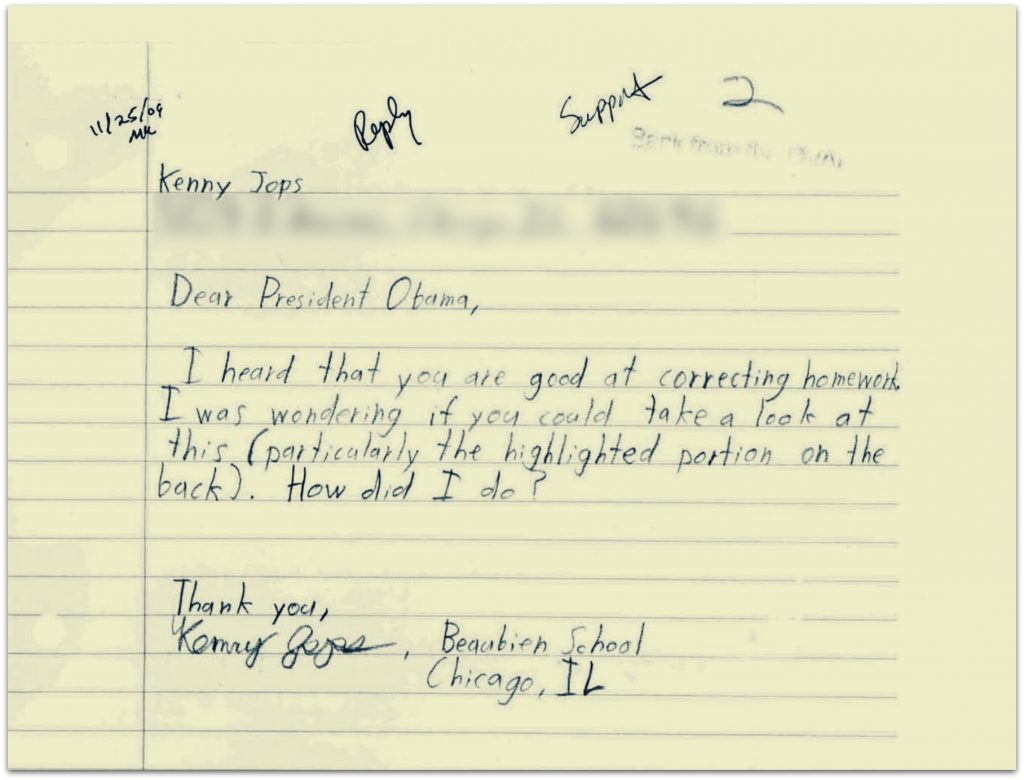 11/25/09
Reply
Support
2
Back from the
Kenny Jops
Dear President Obama,
I heard that you are good at correcting homework.
I was wondering if you could take a look at
this (particularly the highlighted portion on the
back). How did I do?
Thank you,
Kenny Jops, Beaubien School
Chicago, IL